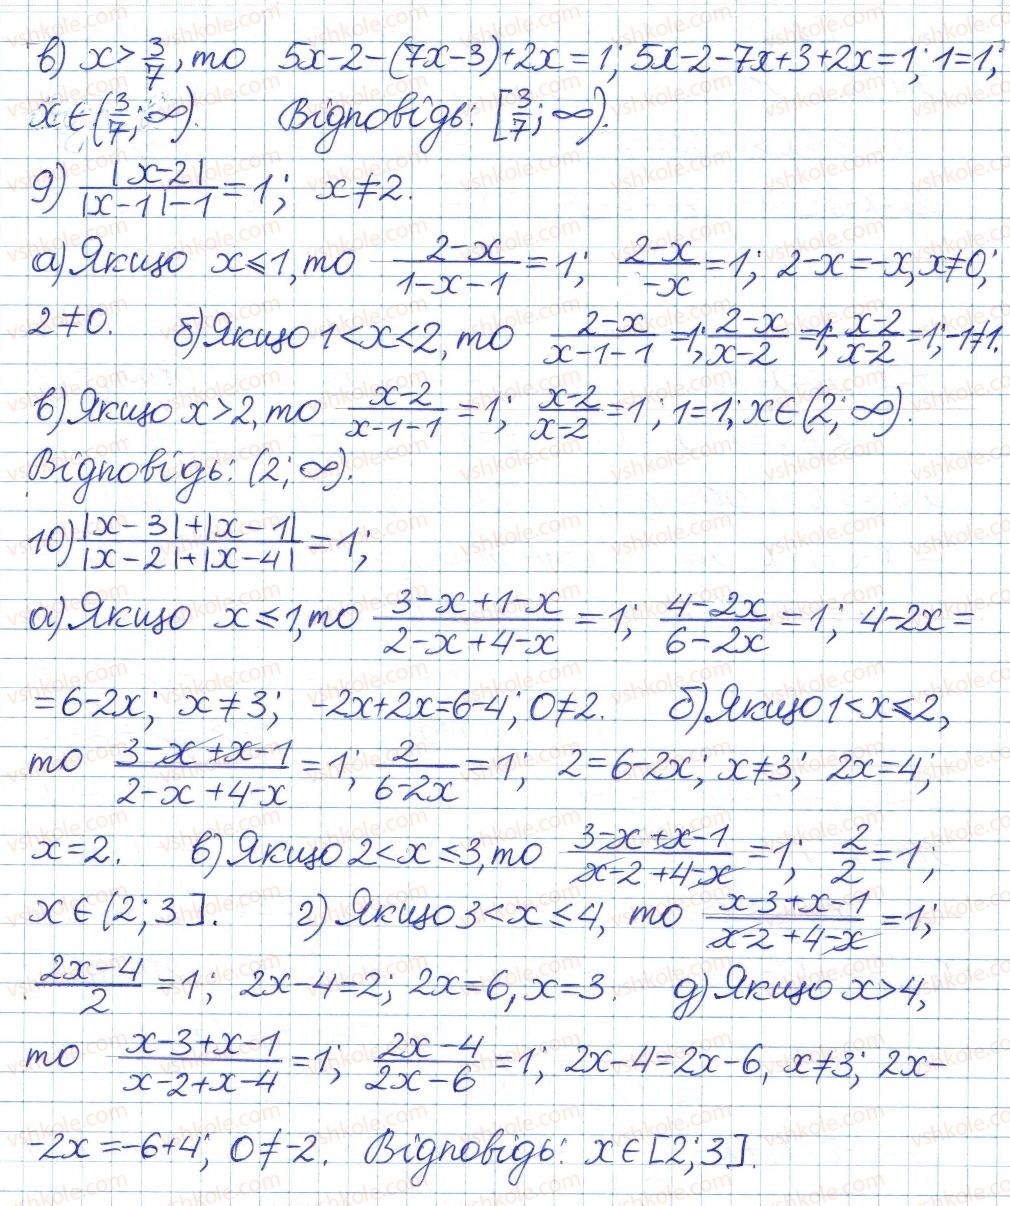 в) x > 3/7, то 5x-2-(7x-3)+2x=1; 5x-2-7x+3+2x=1; 1=1;
x∈(3/7; ∞). Відповідь: [3/7; ∞).
9) |x-2|/(|x-1|-1) = 1; x≠2.
а) Якщо x≤1, то (2-x)/(1-x-1) = 1; (2-x)/(-x) = 1; 2-x=-x, x≠0;
2≠0. б) Якщо 1<x<2, то (2-x)/(x-1-1) = 1; (2-x)/(x-2) = 1; -(x-2)/(x-2) = 1; -1≠1.
в) Якщо x>2, то (x-2)/(x-1-1) = 1; (x-2)/(x-2) = 1; 1=1; x∈(2; ∞).
Відповідь: (2; ∞).
10) (|x-3|+|x-1|)/(|x-2|+|x-4|) = 1;
а) Якщо x≤1, то (3-x+1-x)/(2-x+4-x) = 1; (4-2x)/(6-2x) = 1; 4-2x=
=6-2x; x≠3; -2x+2x=6-4; 0≠2. б) Якщо 1<x≤2,
то (3-x+x-1)/(2-x+4-x) = 1; 2/(6-2x) = 1; 2=6-2x; x≠3; 2x=4;
x=2. в) Якщо 2<x≤3, то (3-x+x-1)/(x-2+4-x) = 1; 2/2 = 1;
x∈(2; 3]. г) Якщо 3<x≤4, то (x-3+x-1)/(x-2+4-x) = 1;
(2x-4)/2 = 1; 2x-4=2; 2x=6, x=3. д) Якщо x>4,
то (x-3+x-1)/(x-2+x-4) = 1; (2x-4)/(2x-6) = 1; 2x-4=2x-6, x≠3; 2x-
-2x=-6+4; 0≠-2. Відповідь: x∈[2; 3].